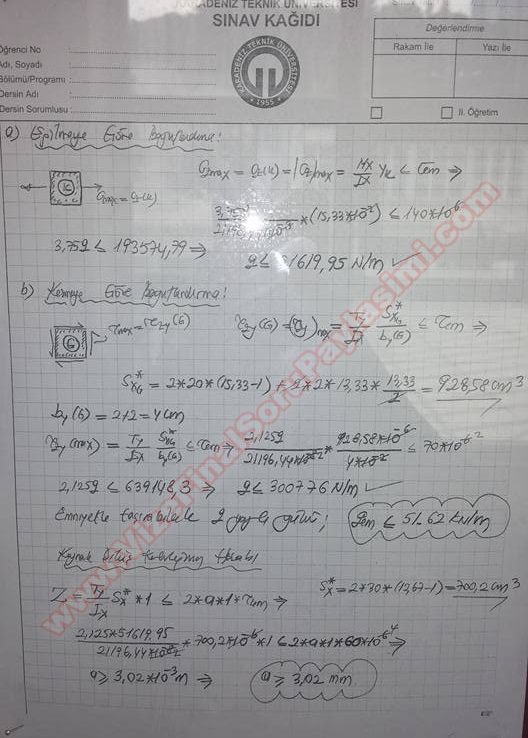 KARADENİZ TEKNİK ÜNİVERSİTESİ
SINAV KAĞIDI
Öğrenci No :
Adı, Soyadı :
Bölümü/Programı :
Dersin Adı :
Dersin Sorumlusu :
Değerlendirme
Rakam İle Yazı İle
II. Öğretim
KARADENİZ TEKNİK ÜNİVERSİTESİ
1955
a) Eğilmeye Göre Boyutlandırma:
K
σmax = σz(K)
σmax = σz(K) = |σz|max = Mx/Ix YK ≤ σem ⇒
3,75q / 21196,44*10^-8 *(15,33*10^-2) ≤ 140*10^6
3,75q ≤ 193574,79 ⇒
q ≤ 51619,95 N/m ✓
b) Kesmeye Göre Boyutlandırma:
G
τmax = τzy(G)
τzy(G) = (τzy)max = Ty/Ix SxG*/by(G) ≤ τem ⇒
SxG* = 2*20*(15,33-1) + 2*2*13,33*13,33/2 = 928,58 cm³
by(G) = 2+2 = 4 cm
τzy(max) = Ty/Ix SxG*/by(G) ≤ τem ⇒ 2,125q / 21196,44*10^-8 * 928,58*10^-6 / 4*10^-2 ≤ 70*10^6
2,125q ≤ 639148,3 ⇒ q ≤ 300776 N/m ✓
Emniyetle taşınabilecek q yayılı yükü; qem ≤ 51.62 kN/m
Kaynak Dikiş Kalınlığının Hesabı
Sx* = 2*30*(12,67-1) = 700,2 cm³
Z = Ty/Ix Sx* *1 ≤ 2*a*1*τem ⇒
2,125*51619.95 / 21196,44*10^-8 *700,2*10^-6 *1 ≤ 2*a*1*60*10^6 ⇒
a ≥ 3,02*10^-3 m ⇒ a ≥ 3,02 mm
www.VizeFinalSoruPaylasimi.com